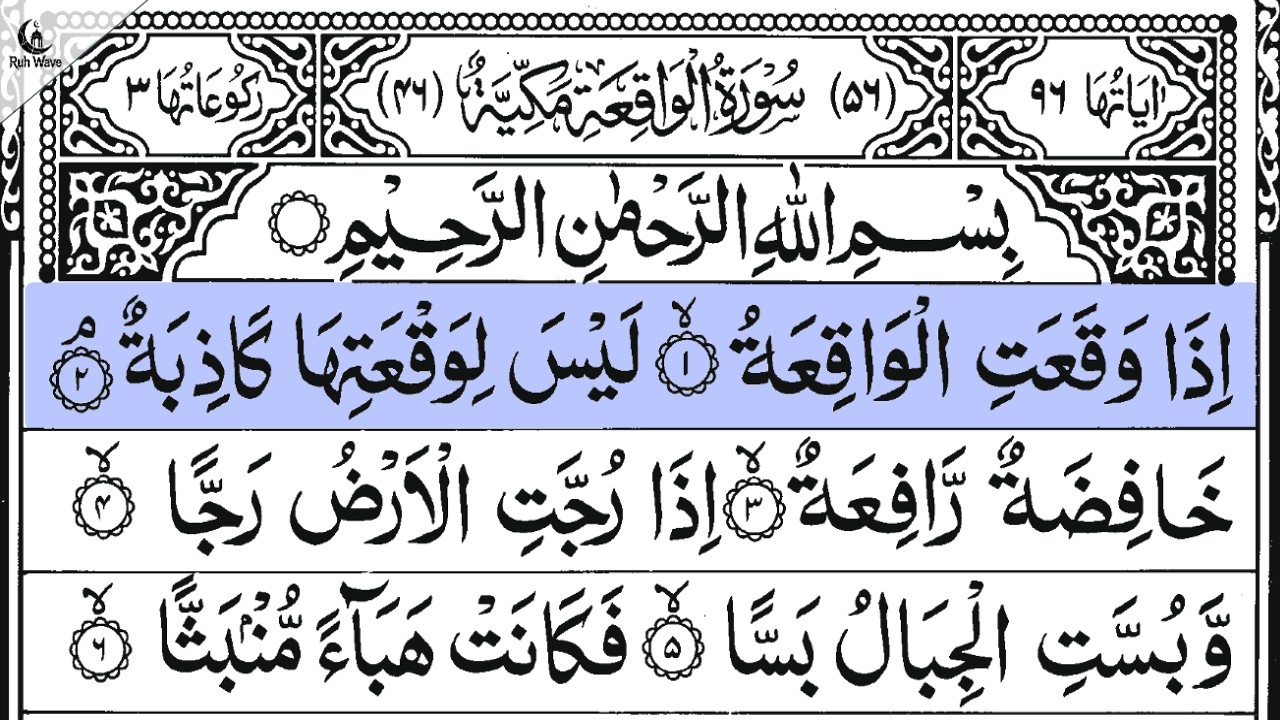 Ruh Wave
اٰيَاتُهَا ٩٦ (٥٦) سُوْرَةُ الْوَاقِعَةِ مَكِّيَّةٌ (٤٦) رُكُوْعَاتُهَا ٣
بِسْمِ اللّٰهِ الرَّحْمٰنِ الرَّحِيْمِ
اِذَا وَقَعَتِ الْوَاقِعَةُ ۙ ١ لَيْسَ لِوَقْعَتِهَا كَاذِبَةٌ ۘ ٢
خَافِضَةٌ رَّافِعَةٌ ۙ ٣ اِذَا رُجَّتِ الْاَرْضُ رَجًّا ۙ ٤
وَّبُسَّتِ الْجِبَالُ بَسًّا ۙ ٥ فَكَانَتْ هَبَآءً مُّنْۢبَثًّا ۙ ٦